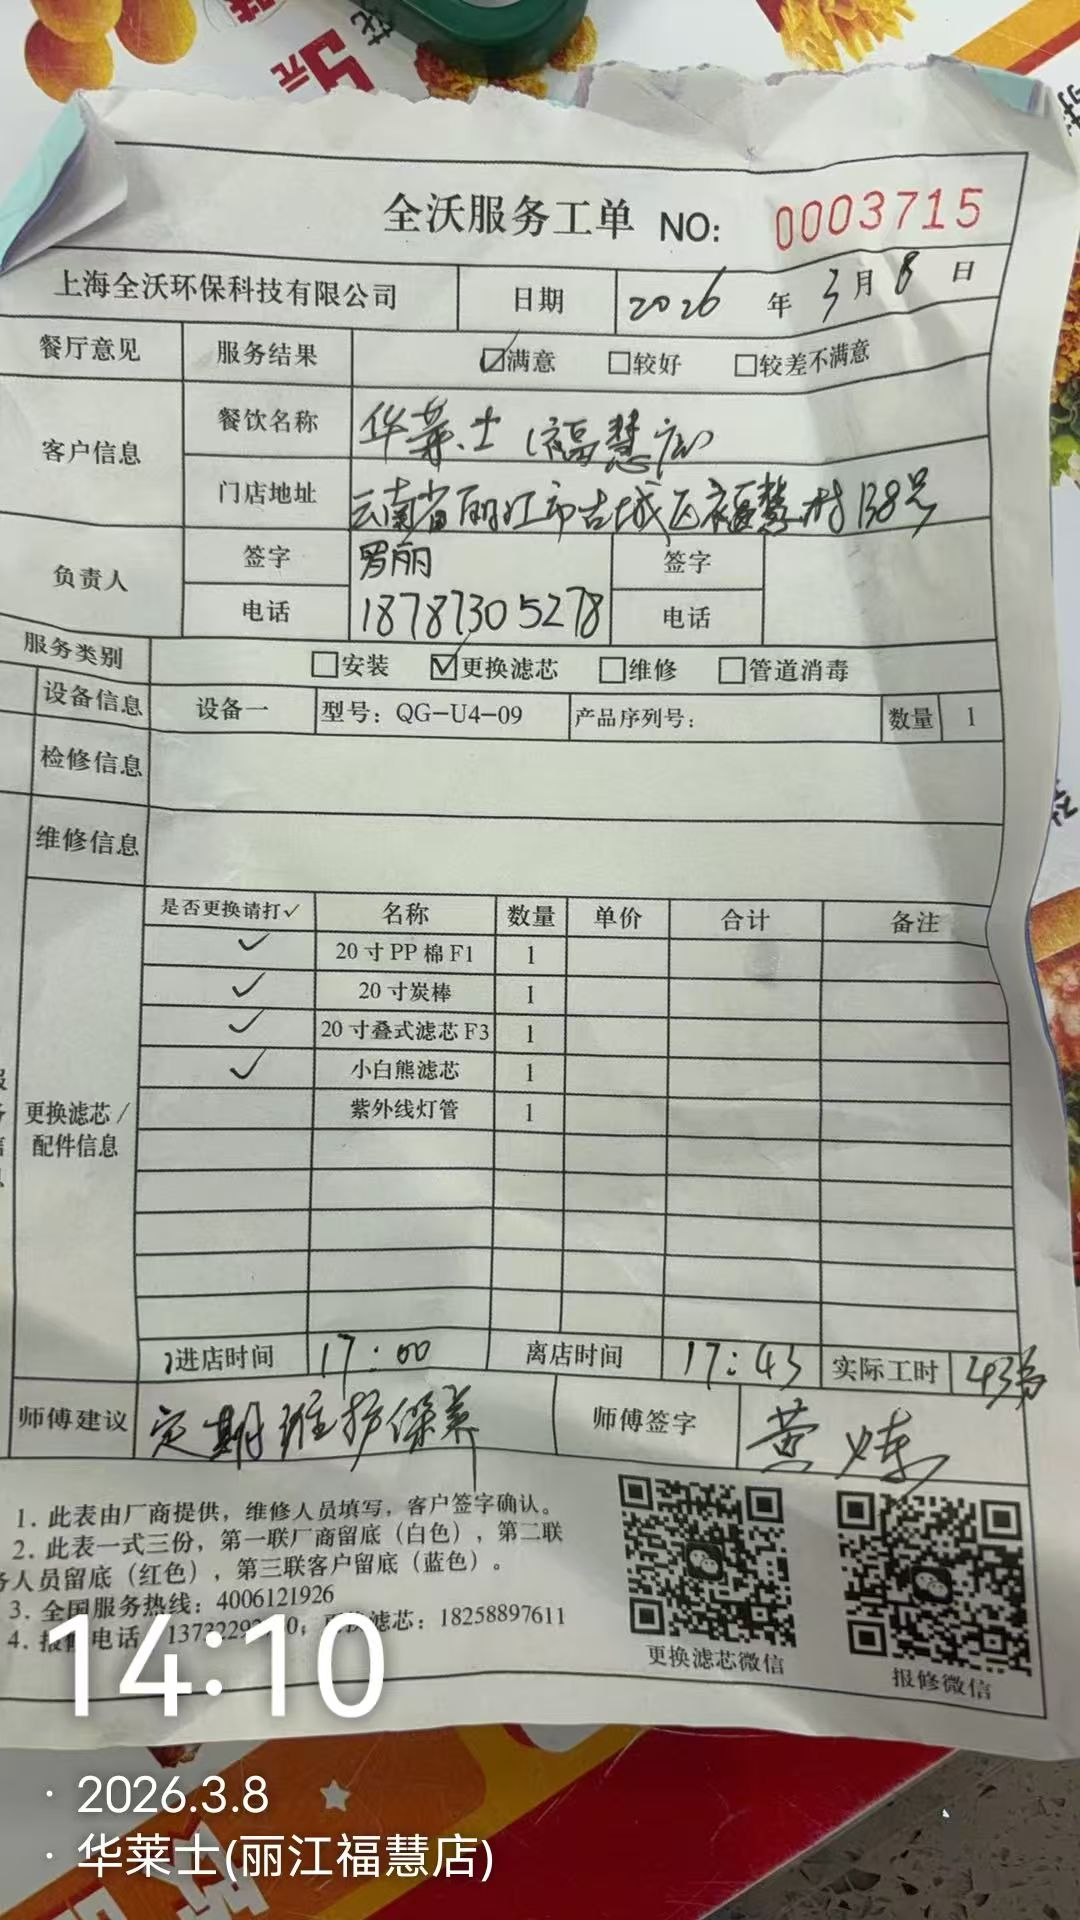 5元
全沃服务工单 NO: 0003715
上海全沃环保科技有限公司 日期 2026 年 3 月 8 日
餐厅意见 服务结果 ☑满意 □较好 □较差不满意
客户信息 餐饮名称 华莱士(福慧店)
门店地址 云南省丽江市古城区福慧村138号
负责人 签字 罗丽 签字
电话 18787305278 电话
服务类别 □安装 ☑更换滤芯 □维修 □管道消毒
设备信息 设备一 型号：QG-U4-09 产品序列号： 数量 1
检修信息
维修信息
是否更换请打✓ 名称 数量 单价 合计 备注
✓ 20寸PP棉F1 1
✓ 20寸炭棒 1
✓ 20寸叠式滤芯F3 1
✓ 小白熊滤芯 1
紫外线灯管 1
更换滤芯/
配件信息
进店时间 17:00 离店时间 17:43 实际工时 43分
师傅建议 定期维护保养 师傅签字 黄炼
1. 此表由厂商提供，维修人员填写，客户签字确认。
2. 此表一式三份，第一联厂商留底（白色），第二联
务人员留底（红色），第三联客户留底（蓝色）。
3. 全国服务热线：4006121926
4. 报修电话 滤芯：18258897611
更换滤芯微信 报修微信
14:10
· 2026.3.8
· 华莱士(丽江福慧店)